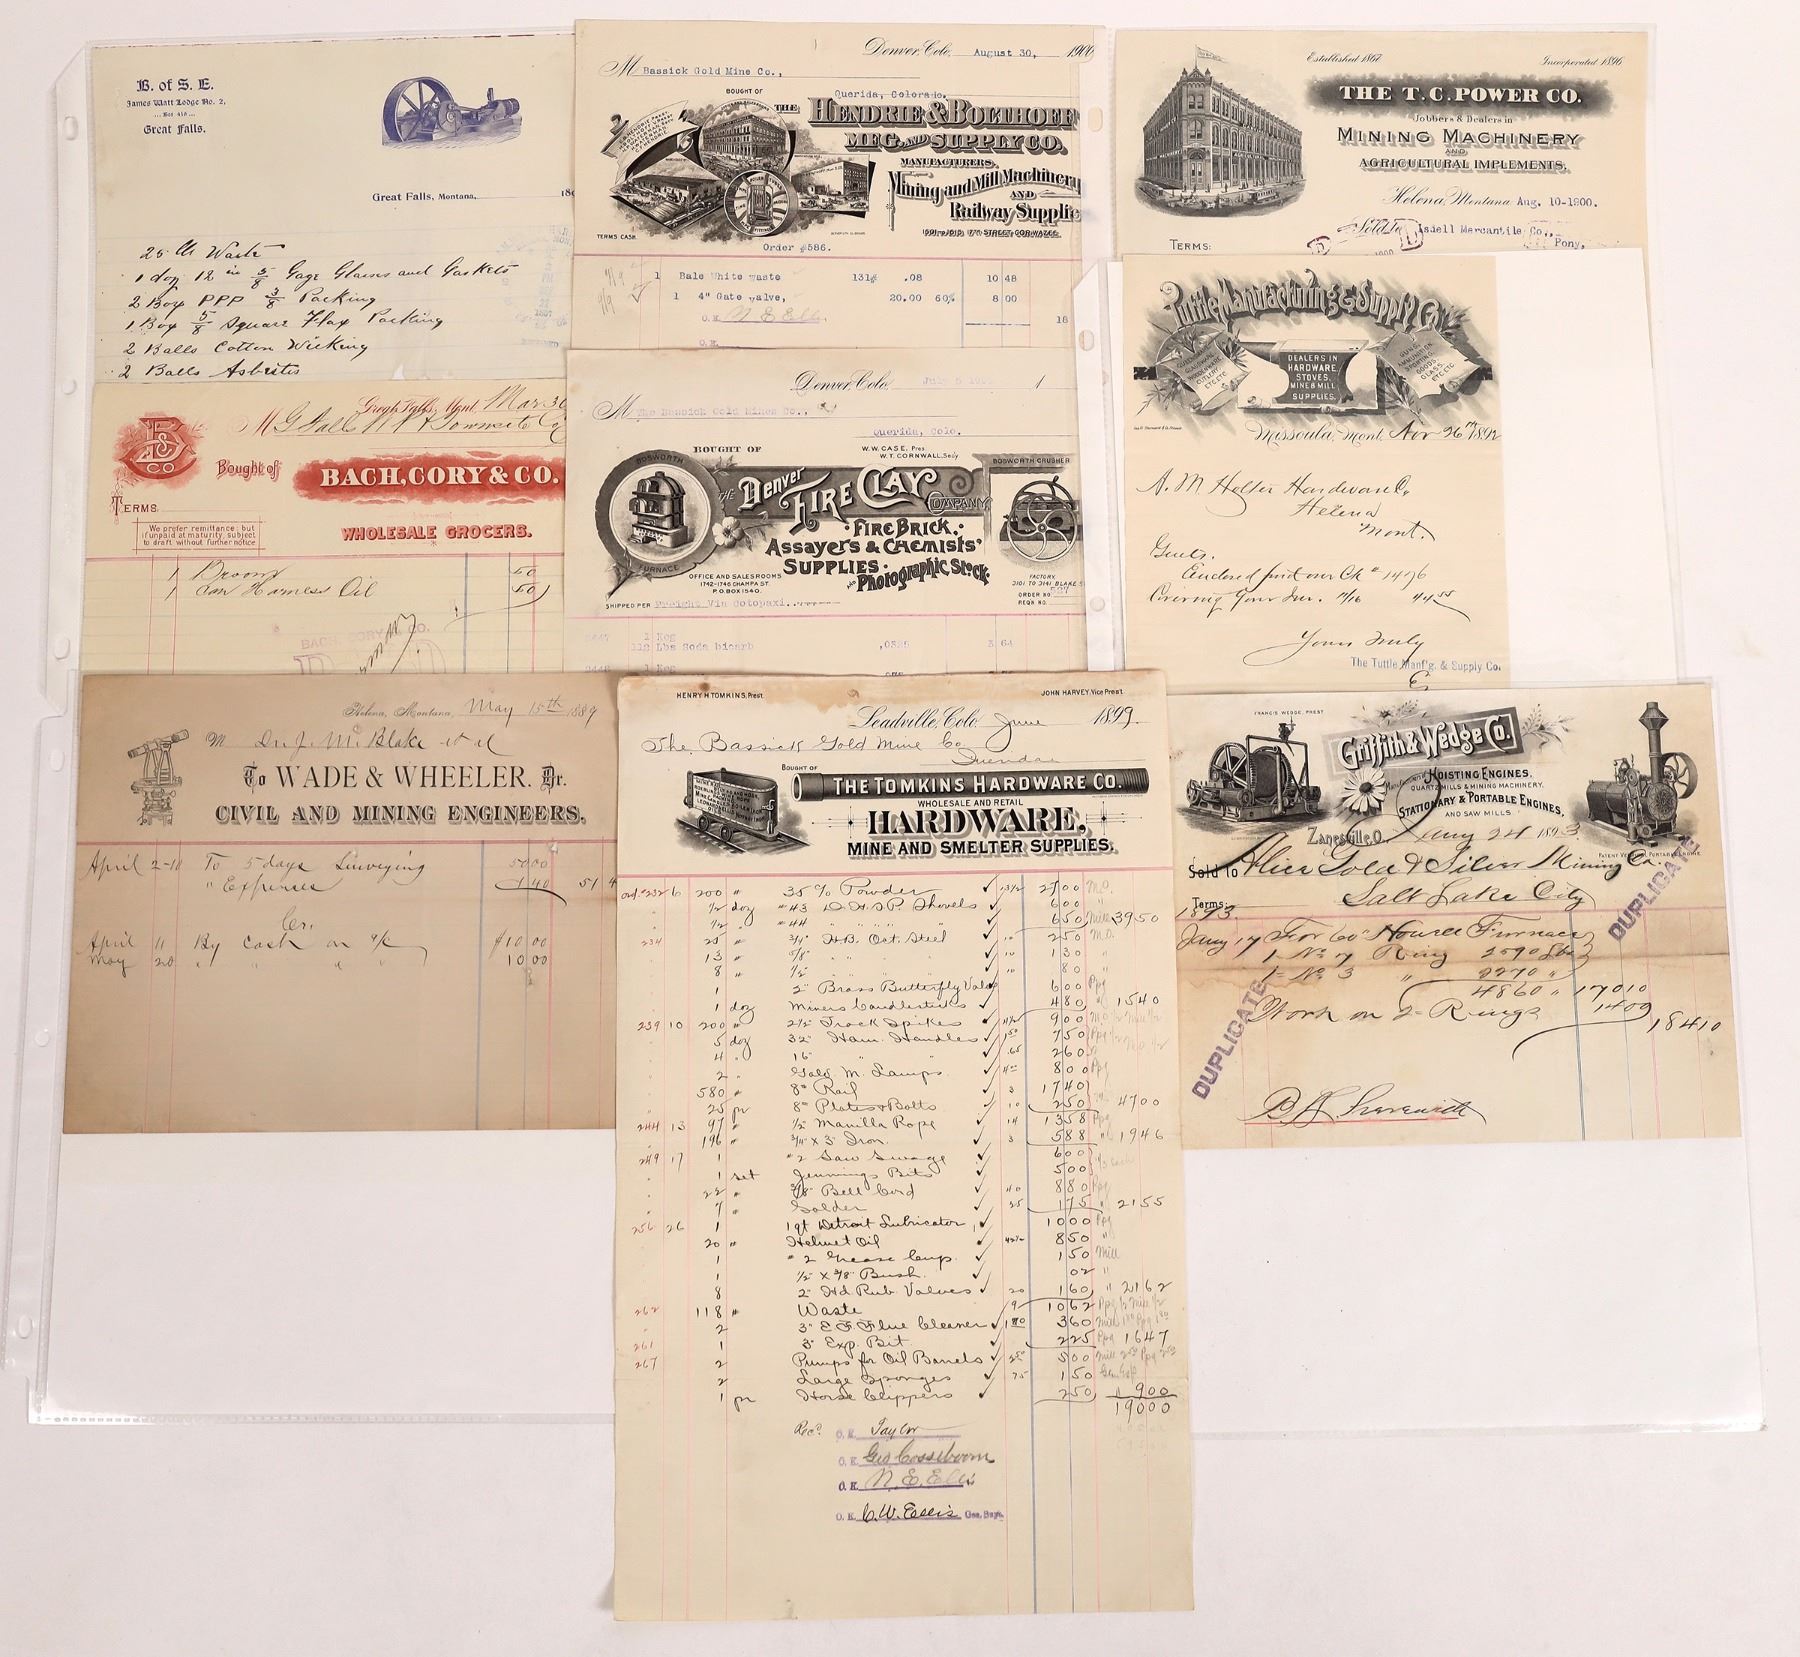 B. of S. E.
James Watt Lodge No. 2,
... Box 416 ...
Great Falls.
Great Falls, Montana,
25 lb Waste
1 doz 12 in 5/8 Gage Glasses and Gaskets
2 Box PPP 3/8 Packing
1 Box 5/8 Square Flax Packing
2 Balls Cotton Wicking
2 Balls Asbestis
Denver, Colo. August 30, 1900
M Bassick Gold Mine Co.,
Querida, Colorado.
BOUGHT OF
THE HENDRIE & BOLTHOFF
MFG. AND SUPPLY CO.
MANUFACTURERS.
Mining and Mill Machinery
AND
Railway Supplie
1601 TO 1615 17TH STREET, COR. WAZEE.
TERMS CASH.
Order #586.
1 Bale White waste 131# .08 10 48
1 4" Gate valve, 20.00 60% 8 00
O.K. N E Ellis
18
O.K.
Established 1867 Incorporated 1896
THE T. C. POWER CO.
Jobbers & Dealers in
MINING MACHINERY
AND
AGRICULTURAL IMPLEMENTS.
Helena, Montana Aug. 10-1900.
Sold to Isdell Mercantile Co.,
Pony,
TERMS:
Tuttle Manufacturing & Supply Co
DEALERS IN
HARDWARE,
STOVES,
MINE & MILL
SUPPLIES.
GUNS,
AMMUNITION
SPORTING
GOODS
GLASS
ETC. ETC.
Missoula, Mont. Nov 26th 1892
A. M Holter Hardware Co
Helena
Mont.
Gents.
Enclosed find our Ck # 1476
Covering your Inv. 44 55
Yours Truly
The Tuttle Manf'g. & Supply Co.
Great Falls, Mont. Mar 30
M G Falls W P & Townsite Co
B C & CO
Bought of BACH, CORY & CO.
TERMS
We prefer remittance; but
if unpaid at maturity, subject
to draft without further notice
WHOLESALE GROCERS.
1 Broom 50
1 Can Harness Oil 50
BACH, CORY & CO.
Denver, Colo. July 5
M The Bassick Gold Mines Co.,
Querida, Colo.
BOUGHT OF
W. W. CASE, Pres.
W. T. CORNWALL, Secy
BOSWORTH
FURNACE
BOSWORTH CRUSHER
THE Denver FIRE CLAY COMPANY
FIRE BRICK,
ASSAYERS & CHEMISTS'
SUPPLIES. AND Photographic Stock.
OFFICE AND SALESROOMS
1742-1746 CHAMPA ST.
P.O. BOX 1540.
FACTORY
3101 TO 3141 BLAKE S
ORDER NO. 587
REQN NO.
SHIPPED PER Freight Via Cotopaxi.
2447 1 Keg
112 Lbs Soda bicarb .0325 3 64
2448 1 Keg
Helena, Montana, May 15th 1889
M Dr. J. McBlake et al
To WADE & WHEELER. Dr.
CIVIL AND MINING ENGINEERS.
April 2-10 To 5 days Surveying 50 00
" Expenses 1 40 51 4
Cr.
April 11 By Cash on a/c $10 00
May 20 " " " " 10 00
HENRY H. TOMKINS, Prest. JOHN HARVEY, Vice Prest
Leadville, Colo. June 1899.
The Bassick Gold Mine Co
Querida
BOUGHT OF
THE TOMKINS HARDWARE CO.
WHOLESALE AND RETAIL
HARDWARE,
MINE AND SMELTER SUPPLIES.
Ord. 232 6 200 " 35% Powder 13 1/2 27 00 M.O.
1/2 doz #43 D.H.S.P. Shovels 6 00 "
1/2 " #44 " " " 6 50 Mill 39 50
234 25 " 3/4" H.B. Oct. Steel 10 2 50 M.O.
13 " 5/8" " " " 10 1 30 "
8 " 1/2" " " " 10 80 "
1 2" Brass Butterfly Valve 6 00 Ppg
1 doz Miners Candlesticks 4 80 " 15 40
239 10 200 " 2 1/2" Track Spikes 4 1/2 9 00
5 doz 32" Ham. Handles 1 50 7 50
4 " 16" " " .65 2 60
2 " Galv. M. Lamps. 4 00 8 00 Ppg
580 " 8# Rail 3 17 40
25 pr 8# Plates & Bolts 10 2 50 47 00
244 13 97 " 1/2" Manilla Rope 14 13 58 Ppg
196 " 3/4 x 3" Iron 3 5 88 " 19 46
249 17 1 #2 Saw Swage 6 00
1 set Jennings Bits 5 00
22 " 3/8" Bell Cord 40 8 80 Ppg
7 " Solder 25 1 75 " 21 55
256 26 1 1 qt Detroit Lubricator 10 00 Ppg
20 " Helmet Oil 42 1/2 8 50 "
1 #2 Grease Cup. 1 50 Mill
1 1/2 x 3/8" Bush. 02 "
8 2" Hd Rub. Valves 20 1 60 " 21 62
262 118 " Waste 9 10 62 Ppg 1/2 Mill 1/2
2 3" E F Flue Cleaner 1 80 3 60 Mill 1 80 Ppg 1 80
261 1 3" Exp. Bit 2 25 Ppg 16 47
267 2 Pumps for Oil Barrels 2 50 5 00 Mill 2 50 Ppg 2 50
2 Large Sponges 75 1 50
1 pr Horse Clippers 2 50 " 9 00
190 00
Rec'd. O.K. Taylor
O.K. Geo Cossboom
O.K. N. E. Ellis
O.K. C. W. Ellis Gen. Supt.
FRANCIS WEDGE, PREST
Griffith & Wedge Co.
HOISTING ENGINES,
QUARTZ MILLS & MINING MACHINERY,
STATIONARY & PORTABLE ENGINES,
AND SAW MILLS.
PATENT VERTICAL PORTABLE ENGINE
Zanesville, O. Jany 24 1893
Sold to Alice Gold & Silver Mining Co.
Salt Lake City
Terms:
1893.
Jany 17 For 60" Howell Furnace
1 No 7 Ring 2590 lbs
1 = No 3 " 2270 "
4860 " 170 10
Work on 2 = Rings 14 00
184 10
DUPLICATE
DUPLICATE